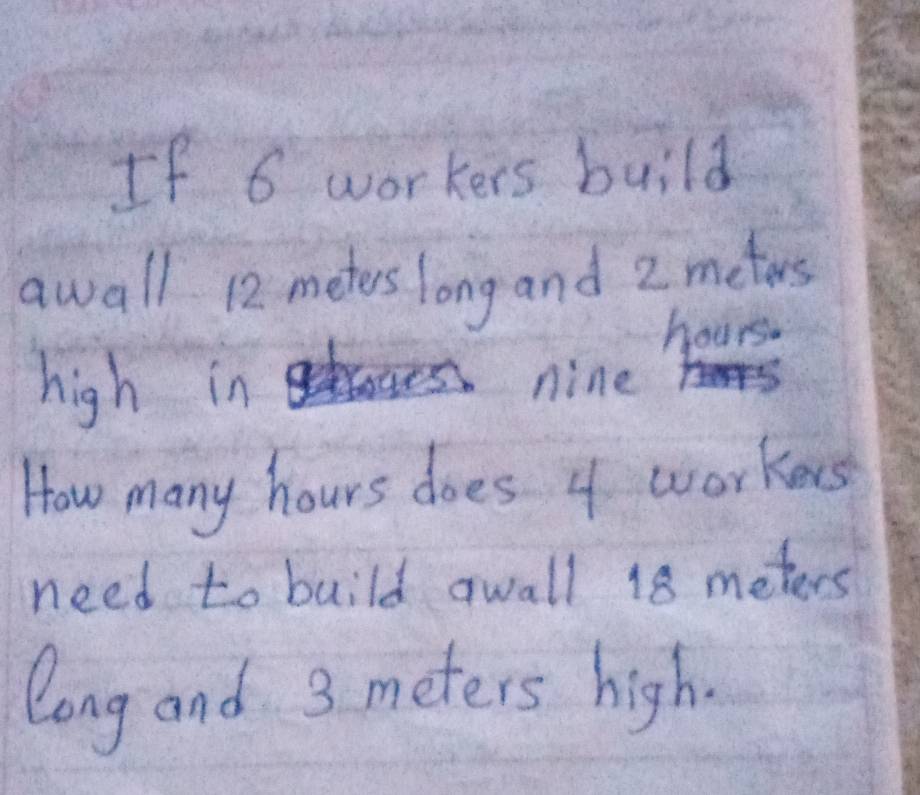 If 6 workers build
awall 12 meters long and 2 meters
high in nine hours.
How many hours does 4 workers
need to build awall 18 meters
long and 3 meters high.